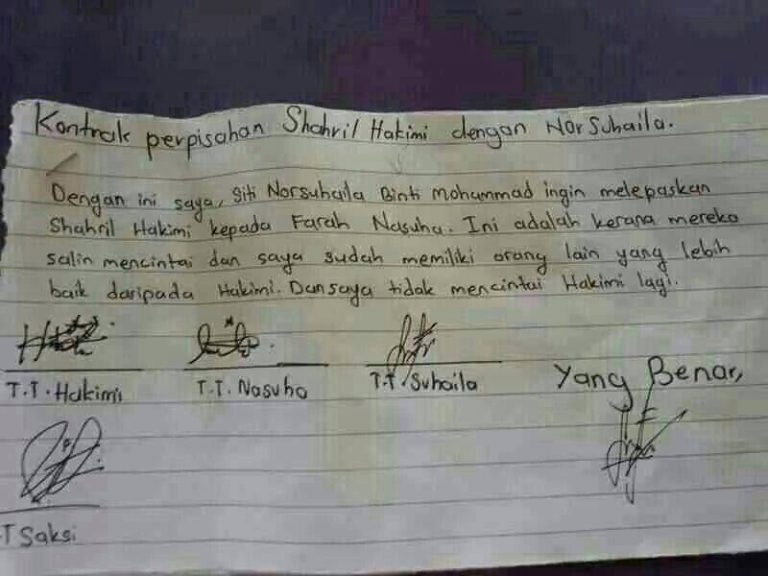 Kontrak perpisahan Shahril Hakimi dengan Nor Suhaila.
Dengan ini saya, Siti Norsuhaila Binti Mohammad ingin melepaskan
Shahril Hakimi kepada Farah Nasuha. Ini adalah kerana mereka
salin mencintai dan saya sudah memiliki orang lain yang lebih
baik daripada Hakimi. Dan saya tidak mencintai Hakimi lagi.
T.T. Hakimi T.T. Nasuha T.T. Suhaila Yang Benar,
T Saksi